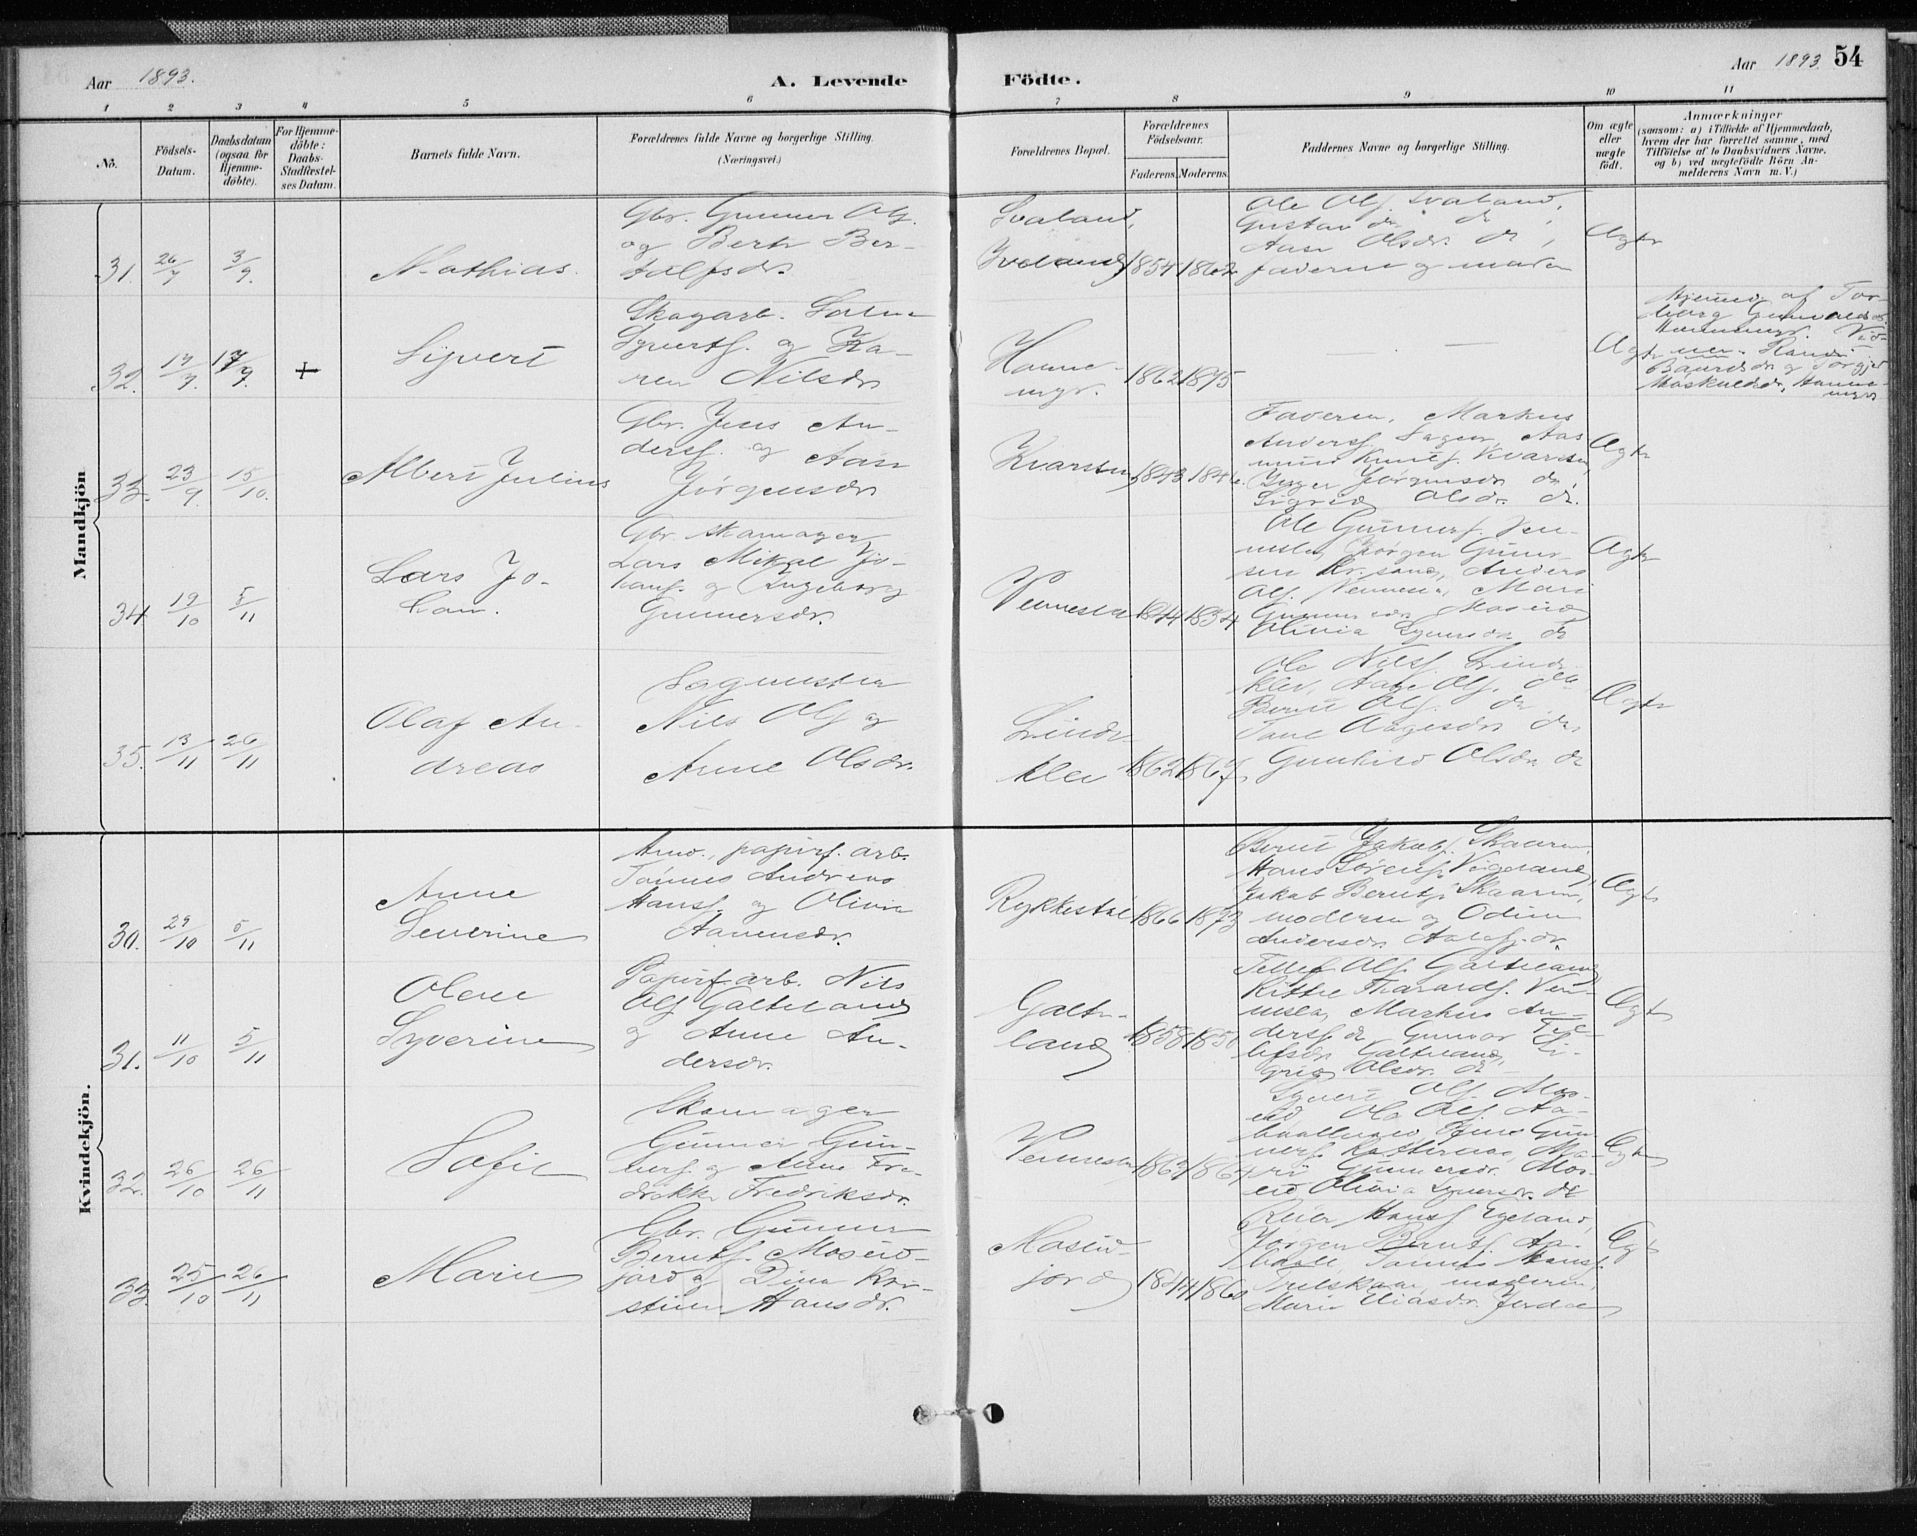 Aar 1893.
A. Levende
Födte.
Aar 1893
54
1 2 3 4 5 6 7 8 9 10 11
Nö.
Födsels-
Datum.
Daabsdatum
(ogsaa för
Hjemme-
döbte).
For Hjemme-
döbte:
Daabs-
Stadfæstel-
ses Datum.
Barnets fulde Navn.
Forældrenes fulde Navne og borgerlige Stilling.
(Næringsvei.)
Forældrenes Bopæl.
Forældrenes
Födselsaar.
Faderens. Moderens.
Faddernes Navne og borgerlige Stilling.
Om ægte
eller
uægte
födt.
Anmærkninger
(saasom: a) i Tilfælde af Hjemmedaab,
hvem der har forrettet samme, med
Tilföielse af to Daabsvidners Navne,
og b) ved uægtefödte Börn An-
melderens Navn m. V.)
Mandkjön
31. 26/7 3/9
Mathias.
Gbr. Gunner Olf.
og Berte Ber-
tolfsdr.
Svaland,
Iveland
1854 1862
Ole Olf. Svaland,
Gustav do do,
Aase Olsdr. do,
faderen og moderen
Ægte
32. 17/9 +
Sijvert
Skogarb. Salve
Syvertf. og Ka-
ren Nilsdr
Honne-
myr.
1862 1875
Ægte
Hjemmed. af Tor-
borg Gunvaldsdr
Honnemyr. Vid-
ner. Randi
Baardsdr og Torgjer
Hoskuldsdr, Honne-
myr
33. 23/9 15/10.
Albert Julius
Gbr. Jens An-
dersf. og Aase
Jörgensdr
Kvarsten
1843 1846.
Faderen, Markus
Andersf. Sagen, Aas
mund Knutf. Kvarsten,
Inger Jörgensdr do,
Sigrid Olsdr. do.
Ægte
34 19/10 5/11
Lars Jo-
han.
Gbr. skomager
Lars Mikal Jo-
hanf. og Ingeborg
Gunnersdr.
Vennesla
1844 1854
Ole Gunnerf. Ven-
nesla, Jörgen Gunner-
sen Kr.sand, Anders
Olf. Vennesla, Mari
Gunnersdr Moseid
Olivia Syversdr do
Ægte
35. 13/11 26/11
Olaf An-
dreas
Sagmester
Nils Olf og
Anne Olsdr.
Linde-
klev
1862 1867
Ole Nilsf. Linde-
klev, Aage Olf. do
Bernt Olf. do
Tone Aagesdr do
Gunhild Olsdr do
Ægte
Kvindekjön.
30. 29/10 5/11
Anne
Severine
Arb., papirf. arb.
Tönnes Andreas
Hansf. og Olivie
Aanensdr.
Rykkestøl
1866 1873
Bernt Jakobf. Skaaren,
Hans Sörensf. Vigeland,
Jakob Berntf. Skaaren,
moderen og Odine
Andersdr.
Ægte
31. 11/10 5/11
Olene
Syverine
Papirf. arb. Nils
Olf Galteland
og Anne An-
dersdr.
Galte-
land
1858 1850
Tellef Olf. Galteland
Kittel Tharaldf. Ven-
nesla, Markus An-
dersf. do Gunvor Tel-
lefsdr. Galteland, Si-
grid Olsdr. do
Ægte
32. 26/10 26/11
Sofie
Skomager
Gunner Gun-
nerf. og Anne Fre-
drikke Fredriksdr.
Vennesla
1862 1864
Syvert Olf. Mos-
eid Ole Olf. Aa-
Jens Gun-
nerf. Ma-
ri Gunnersdr. Mos-
eid, Olivia Syversdr. do
Ægte
33. 25/10 26/11
Marie
Gbr. Gunner
Berntf. Moseid-
jord og Dina Kir-
stine Hansdr.
Moseid-
jord
1844 1860
Reier Hansf Egeland,
Jörgen Berntf. Aa-
bdall, Tönnes Hansf.
moderen,
Marie Eliasdr.
Ægte